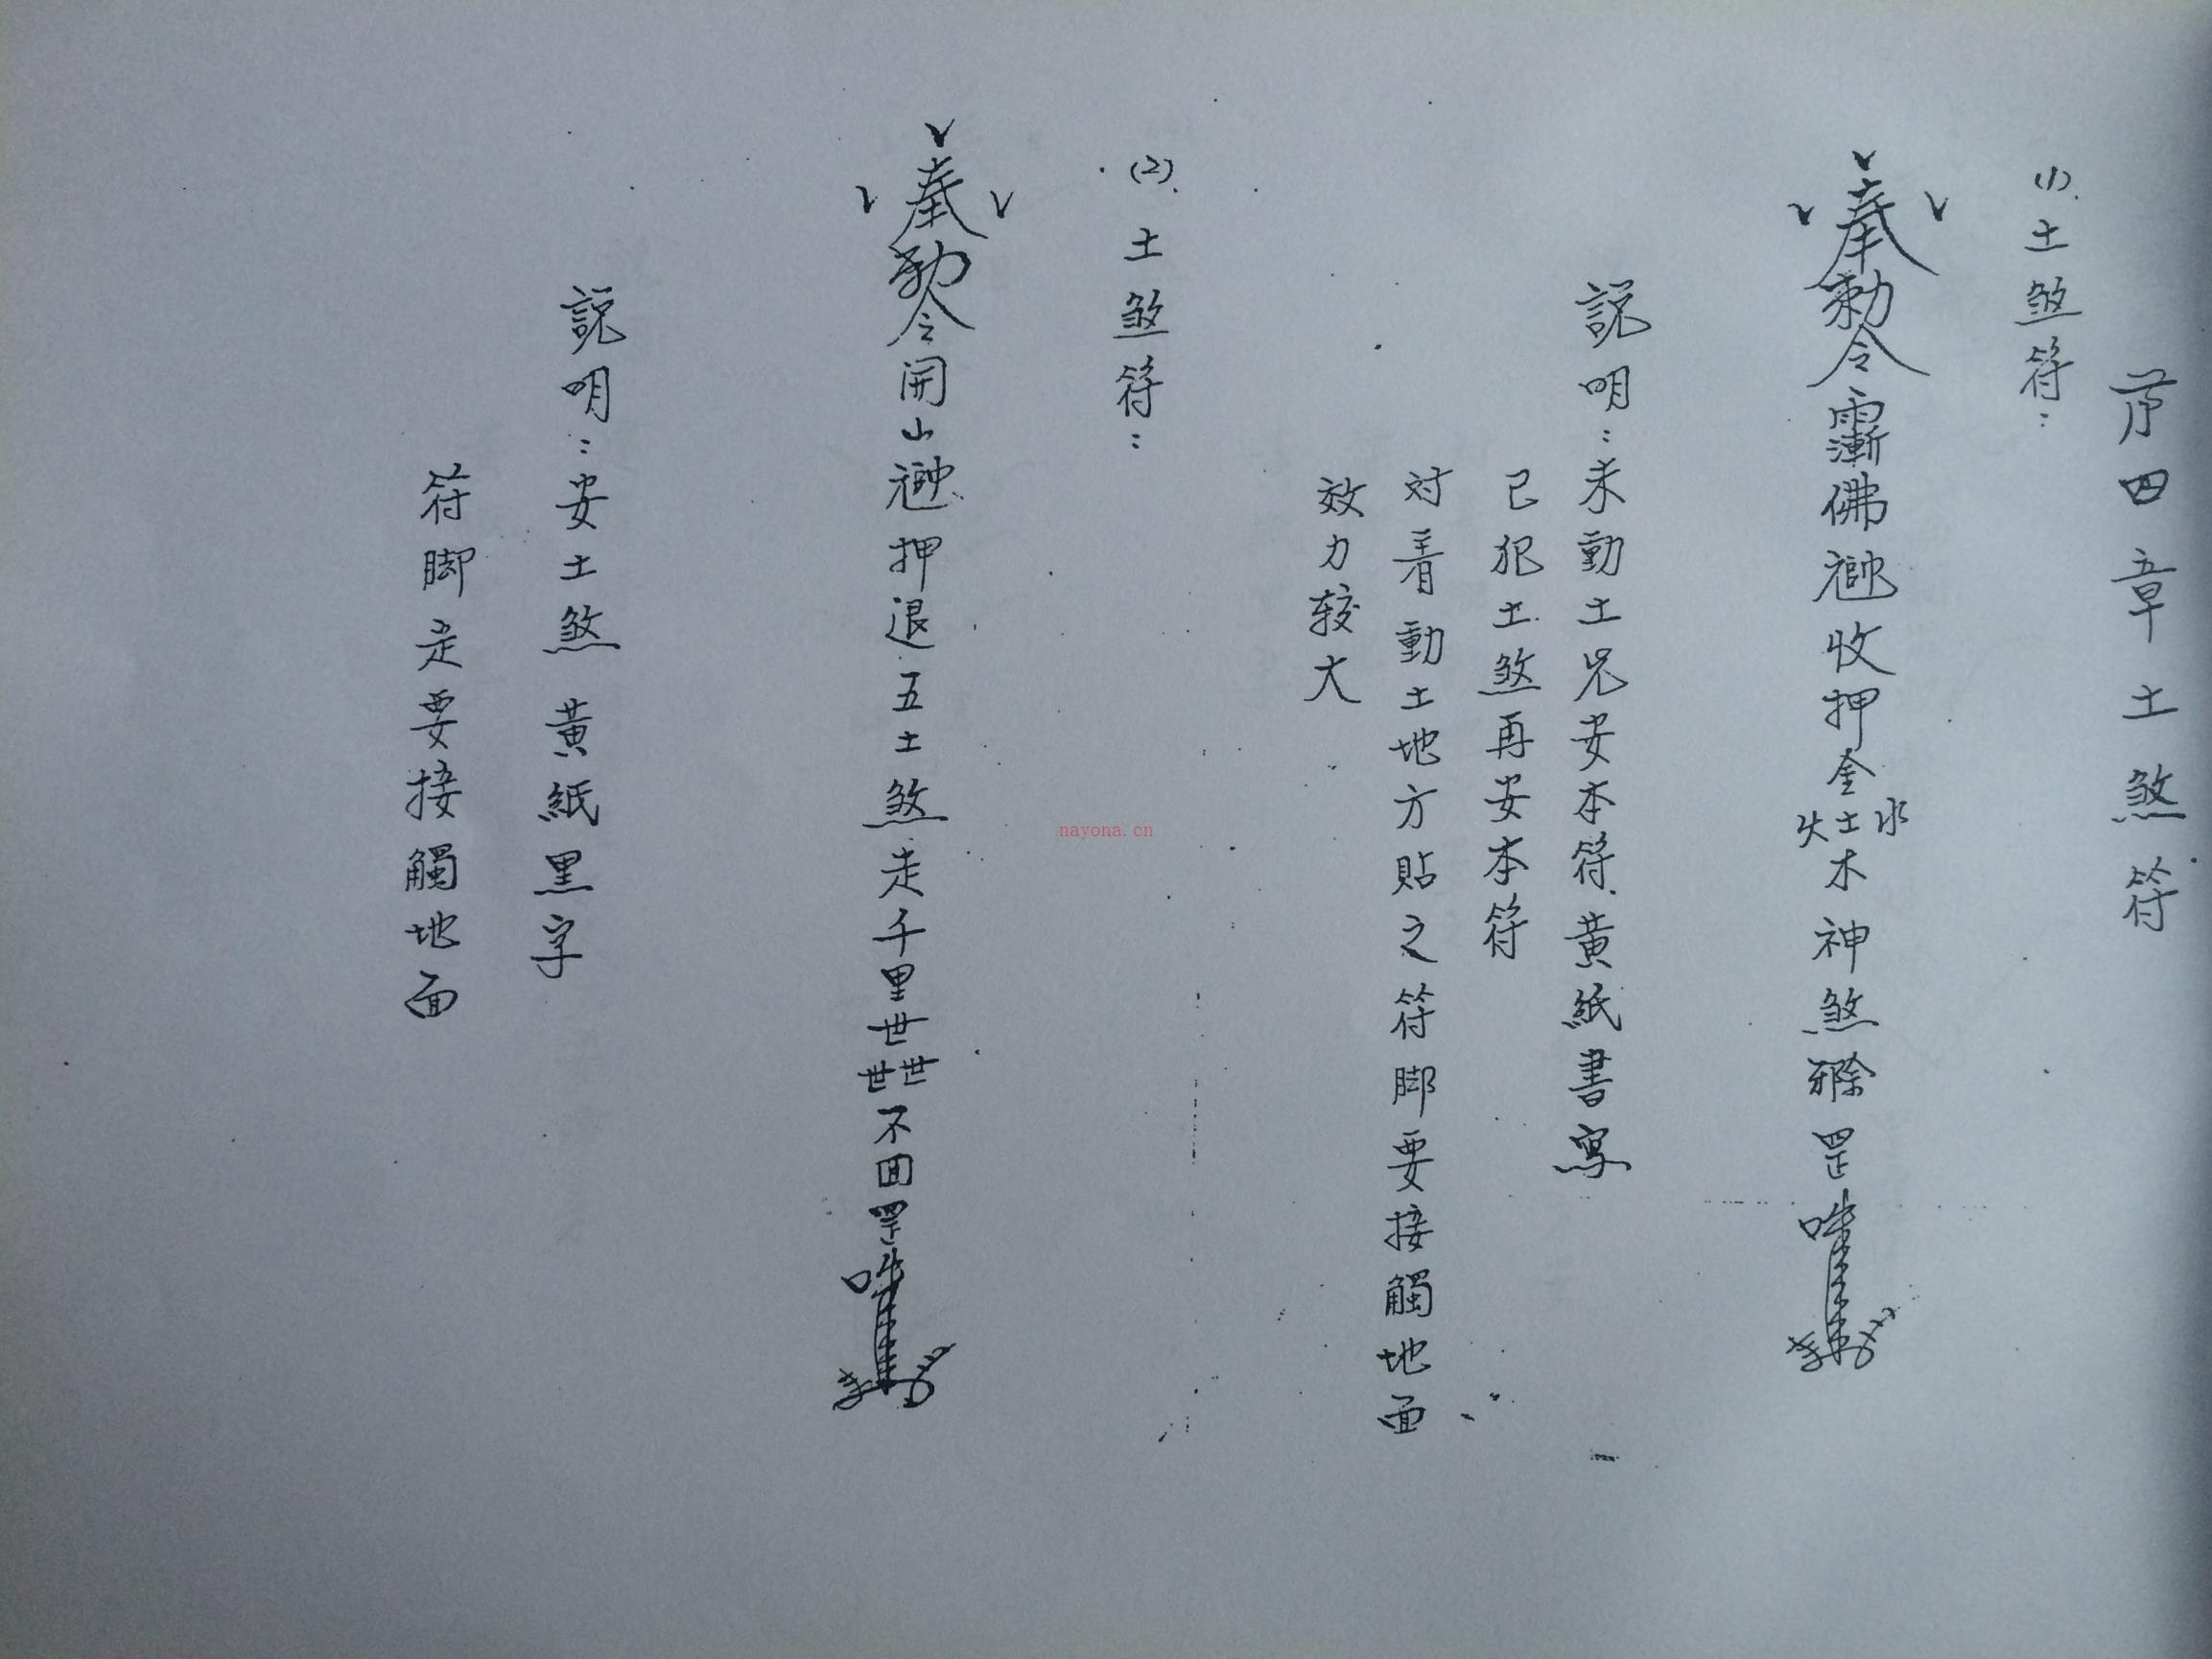 第四章土煞符
(1)土煞符：
奉勅令佛收押金水土火木神煞罡
説明：未動土先安本符黃紙書寫
已犯土煞再安本符
对着動土地方貼之符脚要接觸地面
效力较大
(2)土煞符：
奉勅令開山押退五土煞走千里世世世不回罡
説明：安土煞黃紙黑字
符脚走要接觸地面
nayona.cn